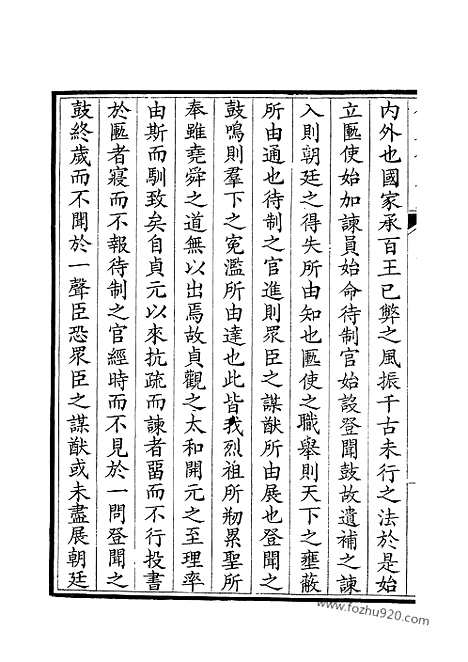 內外也國家承百王已弊之風振千古未行之法於是始
立匭使始加諫員始命待制官始設登聞鼓故遺補之諫
入則朝廷之得失所由知也匭使之職舉則天下之壅蔽
所由通也待制之官進則眾臣之謀猷所由展也登聞之
鼓鳴則羣下之寃濫所由達也此皆我烈祖所剏累聖所
奉雖堯舜之道無以出焉故貞觀之太和開元之至理率
由斯而馴致矣自貞元以來抗疏而諫者畱而不行投書
於匭者寢而不報待制之官經時而不見於一問登聞之
鼓終歲而不聞於一聲臣恐眾臣之謀猷或未盡展朝廷
www.fozhu920.com